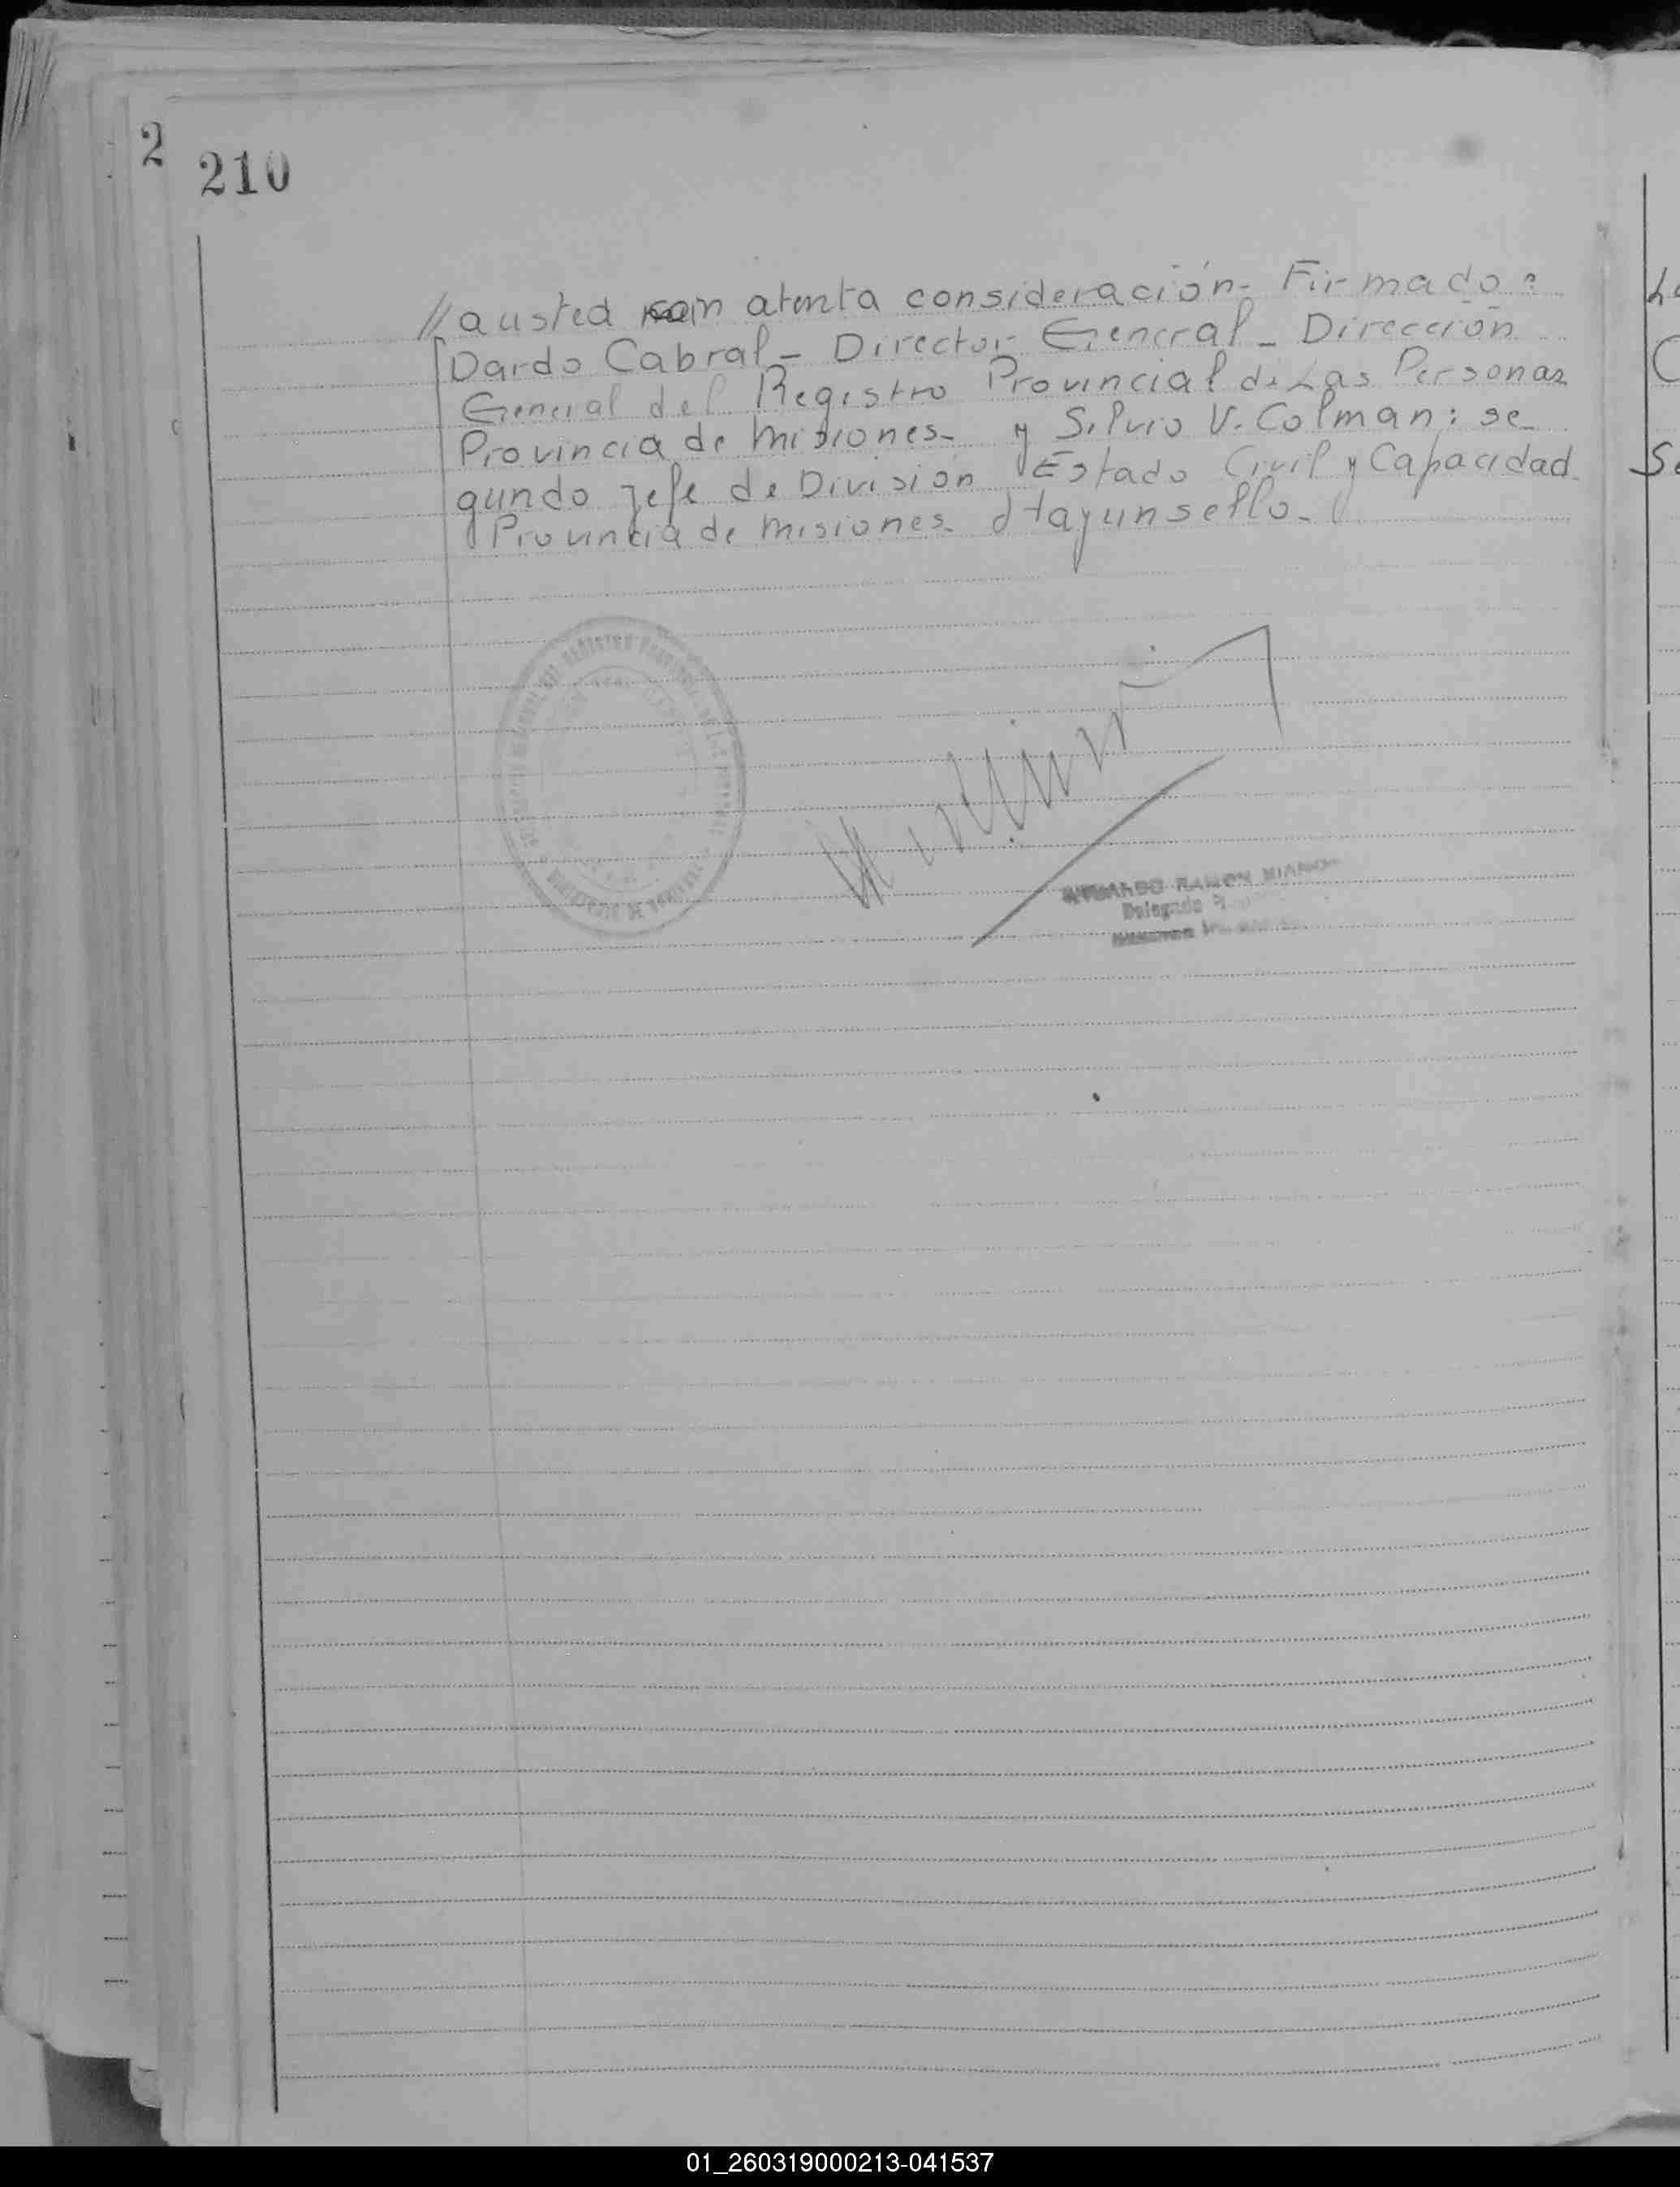 2
210
// a usted con atenta consideración- Firmado:
Dardo Cabral- Director General- Dirección
General del Registro Provincial de Las Personas
Provincia de Misiones- y Silvio V. Colman: se-
gundo jefe de División Estado Civil y Capacidad.
Provincia de Misiones- Hay un sello-
RAMON
Delegado
01_260319000213-041537